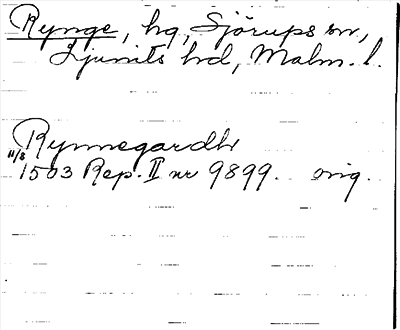 Rynge, hg, Sjörups sn,
Ljunits hd, Malm. l.
Rynnegardh
11/8 1503 Rep. II nr 9899. orig.